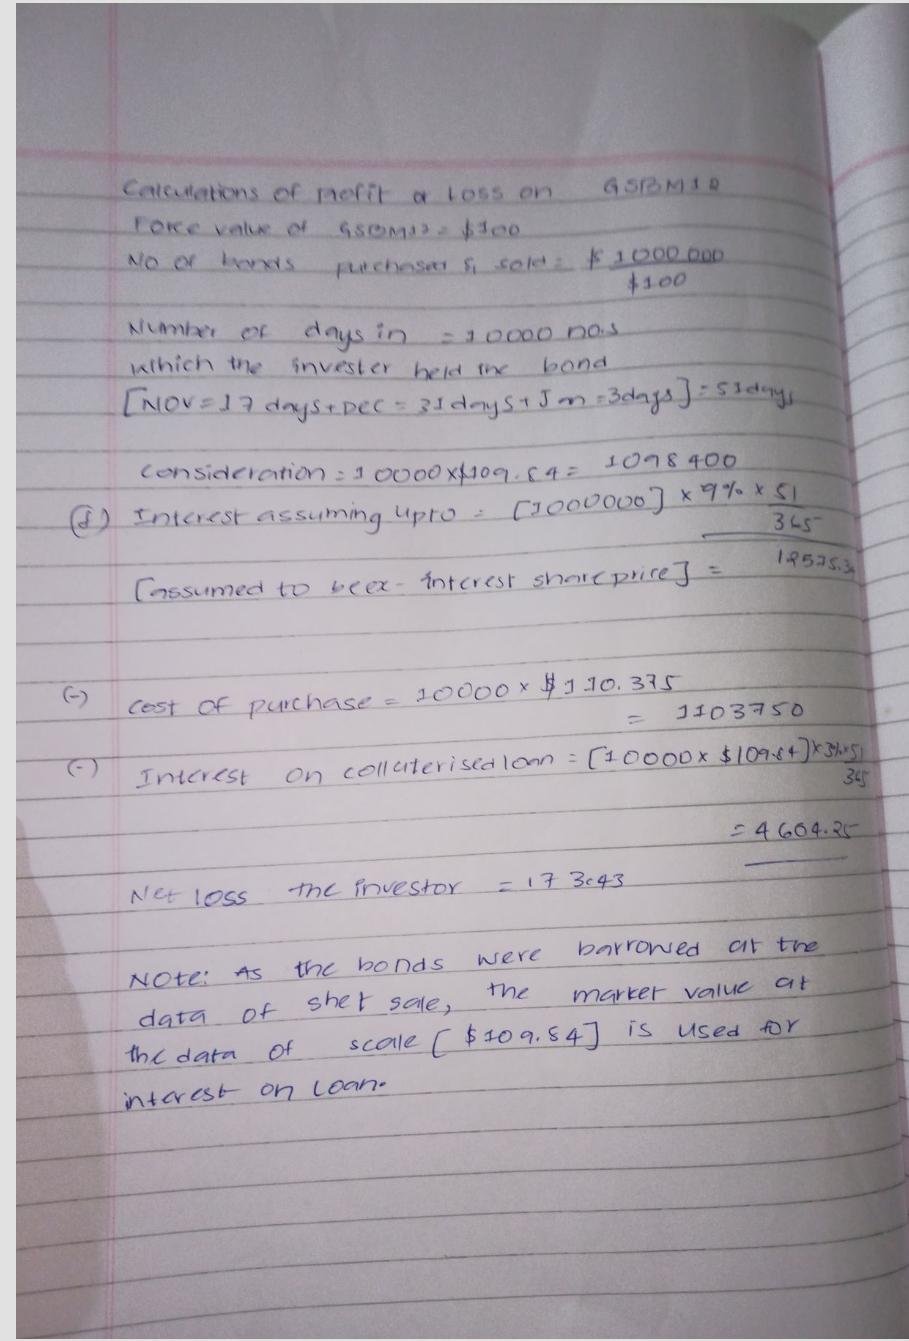 Calculations of profit or Loss on GSBM12
Force value of GSBM12 = $100
No of bonds purchased & sold = $ 1000 000
$100
Number of days in = 10000 nos
which the invester held the bond
[NOV = 17 days + Dec = 31 days + Jan = 3days] = 51days
consideration = 10000x$109.84 = 1098400
Interest assuming upto = [1000000] x 9% x 51
365
[assumed to be ex- interest share price] = 12575.3
(-) cost of purchase = 10000 x $110.375
= 1103750
(-) Interest on collaterised loan = [10000x $109.84] x 3% x 51
365
= 4604.25
Net loss the investor = 173.43
NOte: As the bonds were barrowed at the
data of shet sale, the market value at
the data of scale [$109.84] is used for
interest on Loan.